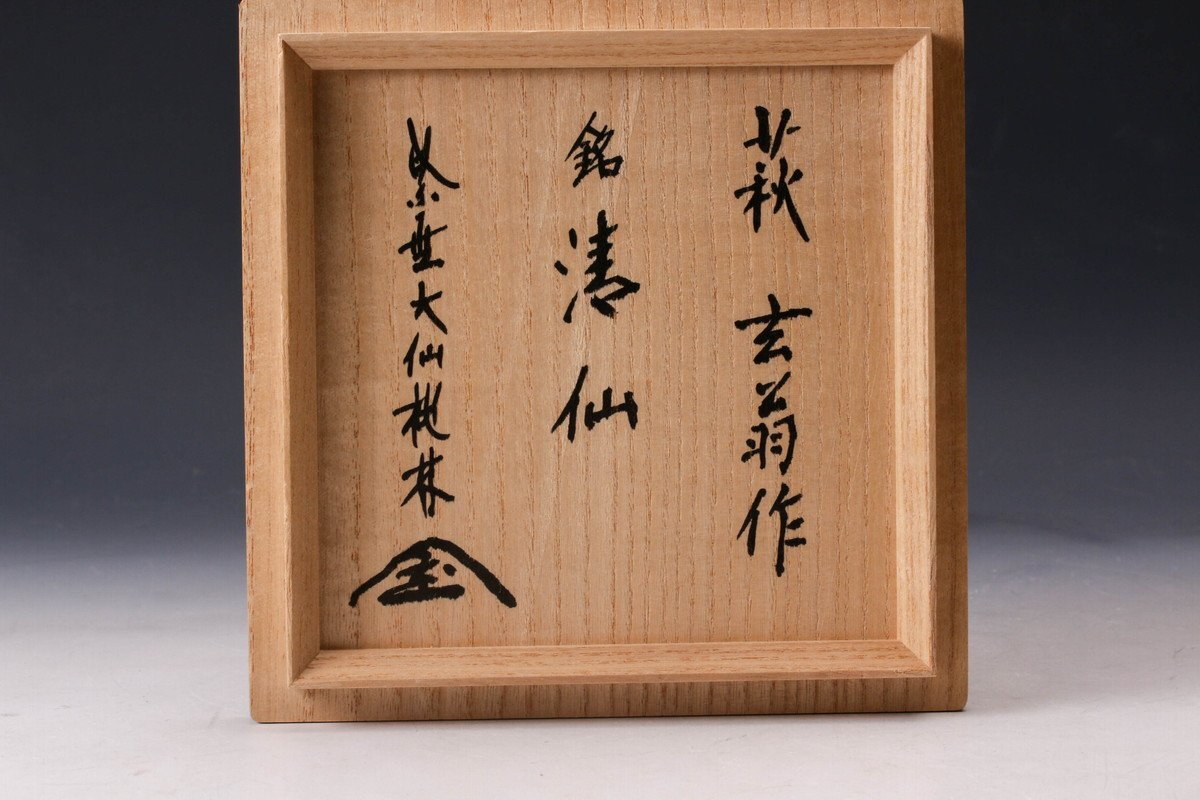 萩 玄翁作
銘 清仙
紫野大仙桃林